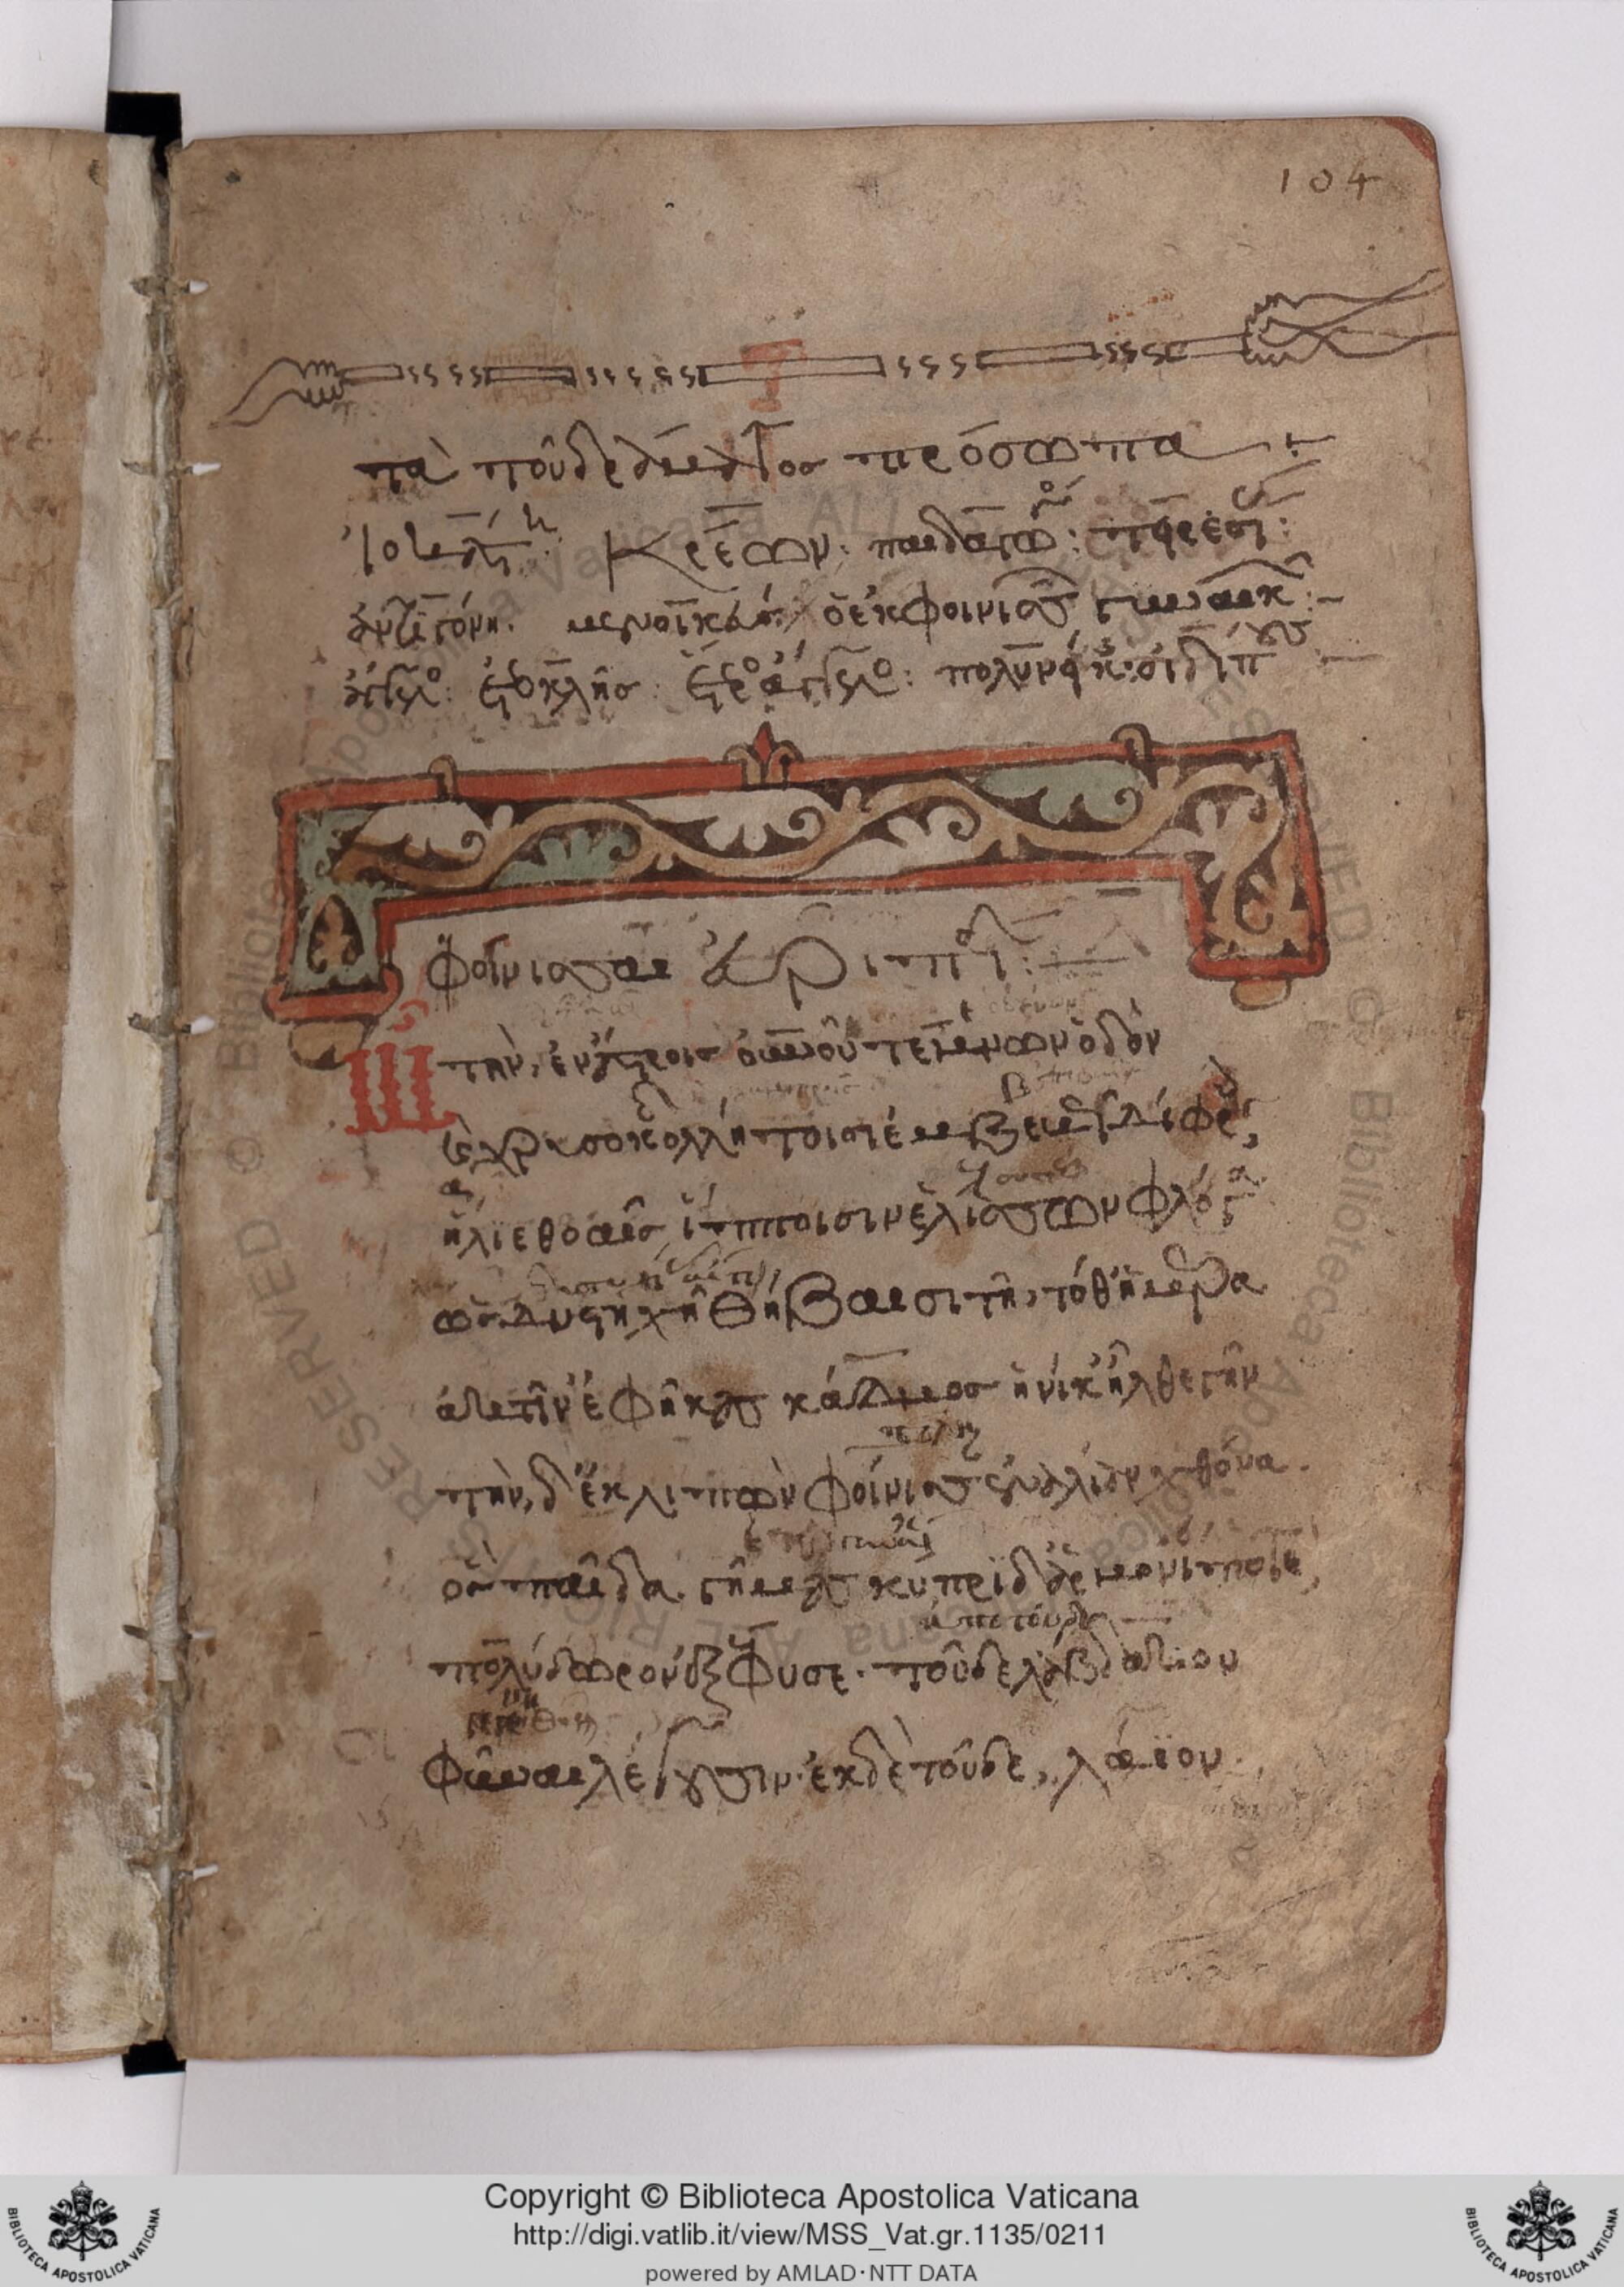 104
τὰ τοῦ δράματος πρόσωπα
Ἰοκάστη: Κρέων: παιδαγωγός: τειρεσίας:
ἀντιγόνη. μενοικεύς: χορὸς ἐκ φοινισσῶν γυναικῶν:
ἄγγελος: ἐτεοκλῆς: ἕτερος ἄγγελος: πολυνείκης: οἰδίπους
Φοίνισσαι εὐριπίδου:
Ὦ τὴν ἐν ἄστροις οὐρανοῦ τέμνων ὁδὸν
καὶ χρυσοκολλήτοισιν ἐμβεβὼς δίφροις,
ἥλιε θοαῖς ἵπποισιν εἱλίσσων φλόγα
ὡς δυστυχῆ θήβαισι τῆ, τόθ' ἡμέρα
ἀκτῖν' ἐφῆκας κάδμος ἡνίκ' ἦλθε γῆν
τήνδ' ἐκλιπὼν φοίνισσαν ἐναλίαν χθόνα.
ὃς παῖδα. γήμας κύπριδος ἁρμονίαν ποτέ,
πολύδωρον ἐξέφυσε. τοῦ δὲ λάβδακον
φῦναι λέγουσιν. ἐκ δὲ τοῦδε, λάϊον.
Copyright © Biblioteca Apostolica Vaticana
http://digi.vatlib.it/view/MSS_Vat.gr.1135/0211
powered by AMLAD·NTT DATA
BIBLIOTECA APOSTOLICA VATICANA
BIBLIOTECA APOSTOLICA VATICANA